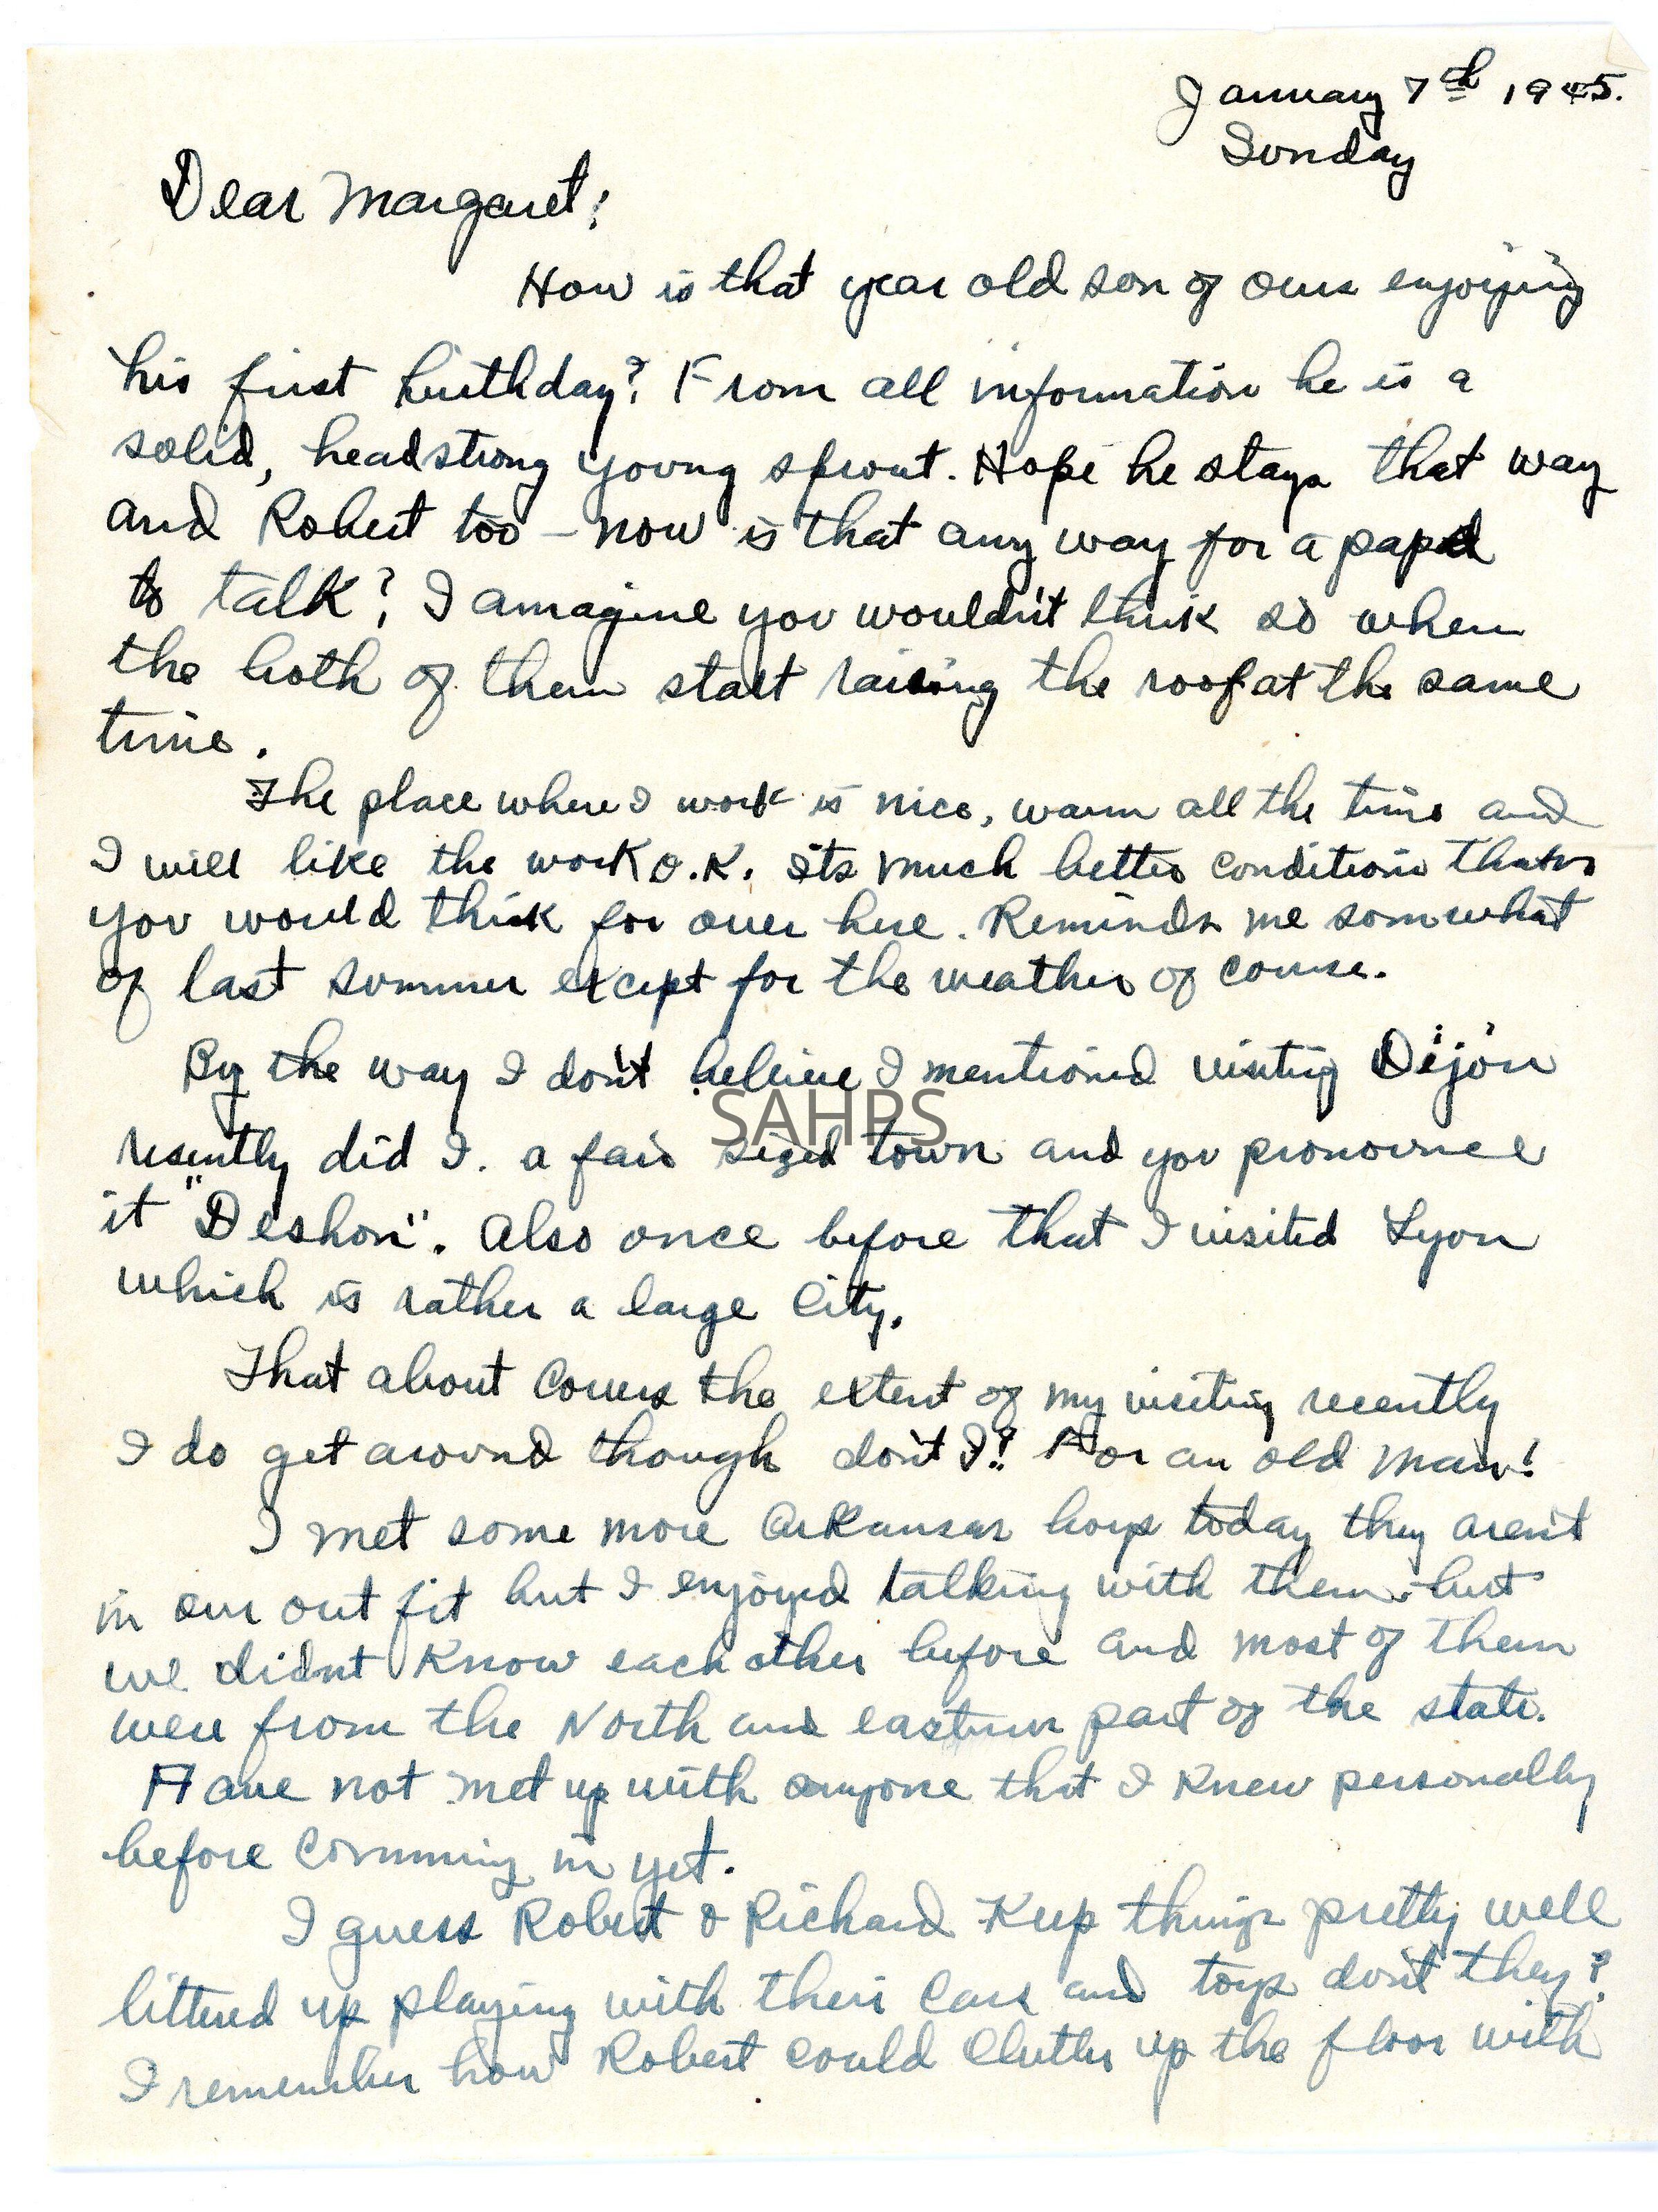 January 7th 1945.
Sunday
Dear Margaret;
How is that year old son of ours enjoying
his first birthday? From all information he is a
solid, headstrong young sprout. Hope he stays that way
and Robert too - now is that any way for a papa
to talk? I amagine you wouldn't think so when
the both of them start raising the roof at the same
time.
The place where I work is nice, warm all the time and
I will like the work O.K. Its much better conditions than
you would think for over here. Reminds me somewhat
of last summer except for the weather of course.
By the way I don't believe I mentioned visiting Dijon
SAHPS
resently did I. a fair sized town and you pronounce
it "Deshon". Also once before that I visited Lyon
which is rather a large City.
That about Covers the extent of my visiting recently
I do get around though don't I? For an old man!
I met some more Arkansas boys today they aren't
in our out fit but I enjoyed talking with them but
we didnt know each other before and most of them
were from the North and eastern part of the state.
Have not met up with anyone that I knew personally
before Comming in yet.
I guess Robert & Richard Keep things pretty well
littered up playing with their Cars and toys don't they?
I remember how Robert could Clutter up the floor with